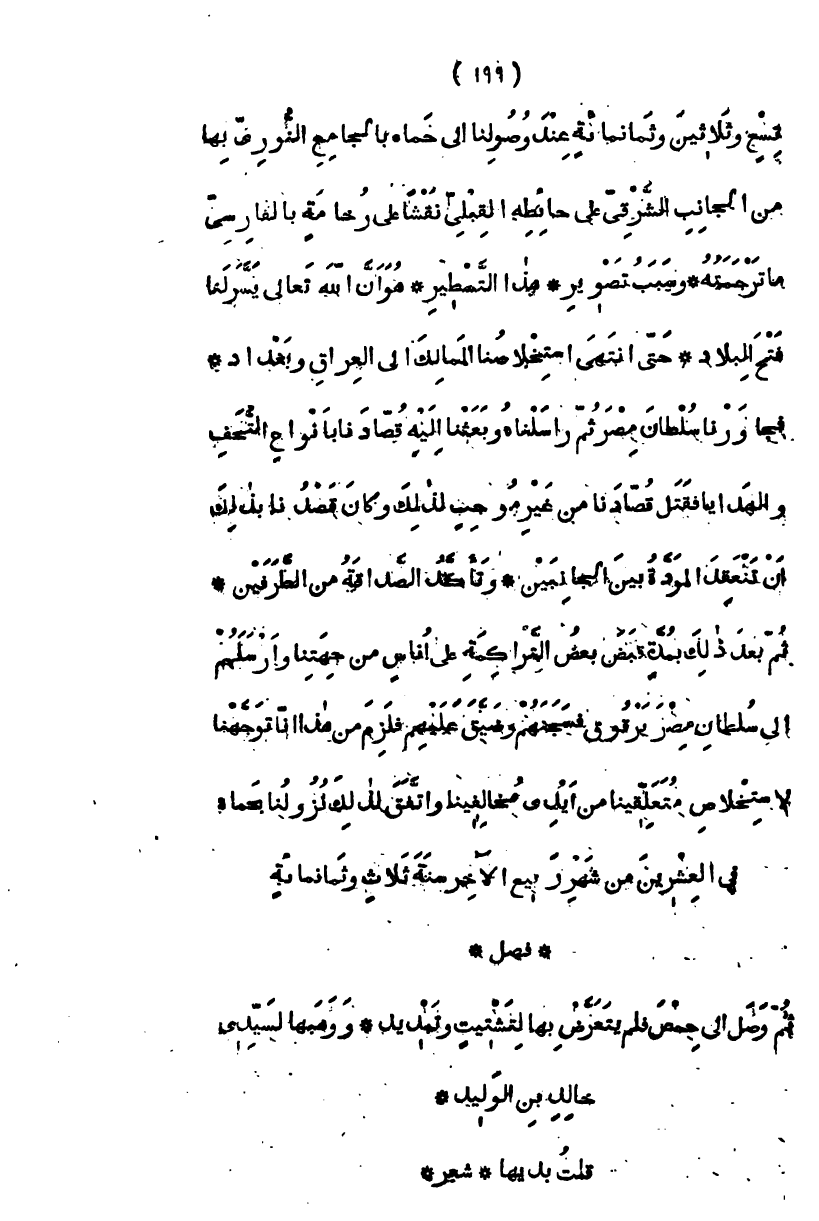 ( ١٩٩ )
تِسْعٍ وثَلاثِينَ وثَمانمائةٍ عِنْدَ وُصُولِنا الى حَماه بالجامِعِ النُّورِىِّ بِها
من الجانِبِ الشَّرْقىِّ على حائِطِهِ القِبْلِىِّ نَقْشًا على رُخامَةٍ بالفارِسِىِّ
ما تَرْجَمَتُهُ * وسَبَبُ تَصْوِيرِ * هٰذا التَّسْطِيرِ * هُوَ اَنَّ اللّهَ تَعالى يَسَّرَ لَنا
فَتْحَ البِلادِ * حَتّى انتَهَى اسْتِخْلاصُنا المَمالِكَ الى العِراقِ وبَغْدادَ *
فجاوَرْنا سُلْطانَ مِصْرَ ثُمّ راسَلْناهُ وبَعَثْنا اِلَيْهِ قُصّادَنا بِاَنْواعِ التُّحَفِ
والهَدايا فقَتَل قُصّادَنا من غَيْرِ مُوجِبٍ لذٰلِكَ وكانَ قَصْدُنا بذٰلِكَ
اَنْ تَنْعَقِدَ المَوَدَّةُ بينَ الجانِبَيْنِ * وتَتأَكَّدَ الصَّداقَةُ من الطَّرَفَيْنِ *
ثُمّ بعدَ ذٰلِكَ بمُدَّةٍ قبَضَ بعضُ التَّراكِمَةِ على اُناسٍ من جِهَتِنا واَرْسَلَهُمْ
الى سُلطانِ مِصْرَ بَرْقُوق فسَجَنَهُمْ وضَيَّقَ عَلَيْهِم فلَزِمَ من هٰذا انّا تَوَجَّهْنا
لاسْتِخْلاصِ مُتَعَلِّقِينا من اَيْدِى مُخالِفِينا واتَّفَقَ لِذٰلِكَ نُزُولُنا بحَماة
فى العِشْرِينَ من شَهْرِ رَبِيع الآخِرِ سنَةَ ثَلاثٍ وثَمانمائةٍ
* فصل *
ثُمّ وَصَل الى حِمْصَ فلم يتَعَرَّضْ بِها لِتَشْتِيتٍ وتَبْدِيد * ووَهَبَها لسَيِّدِى
خالِدِ بنِ الوَلِيدِ *
قلتُ بديها * شعر *